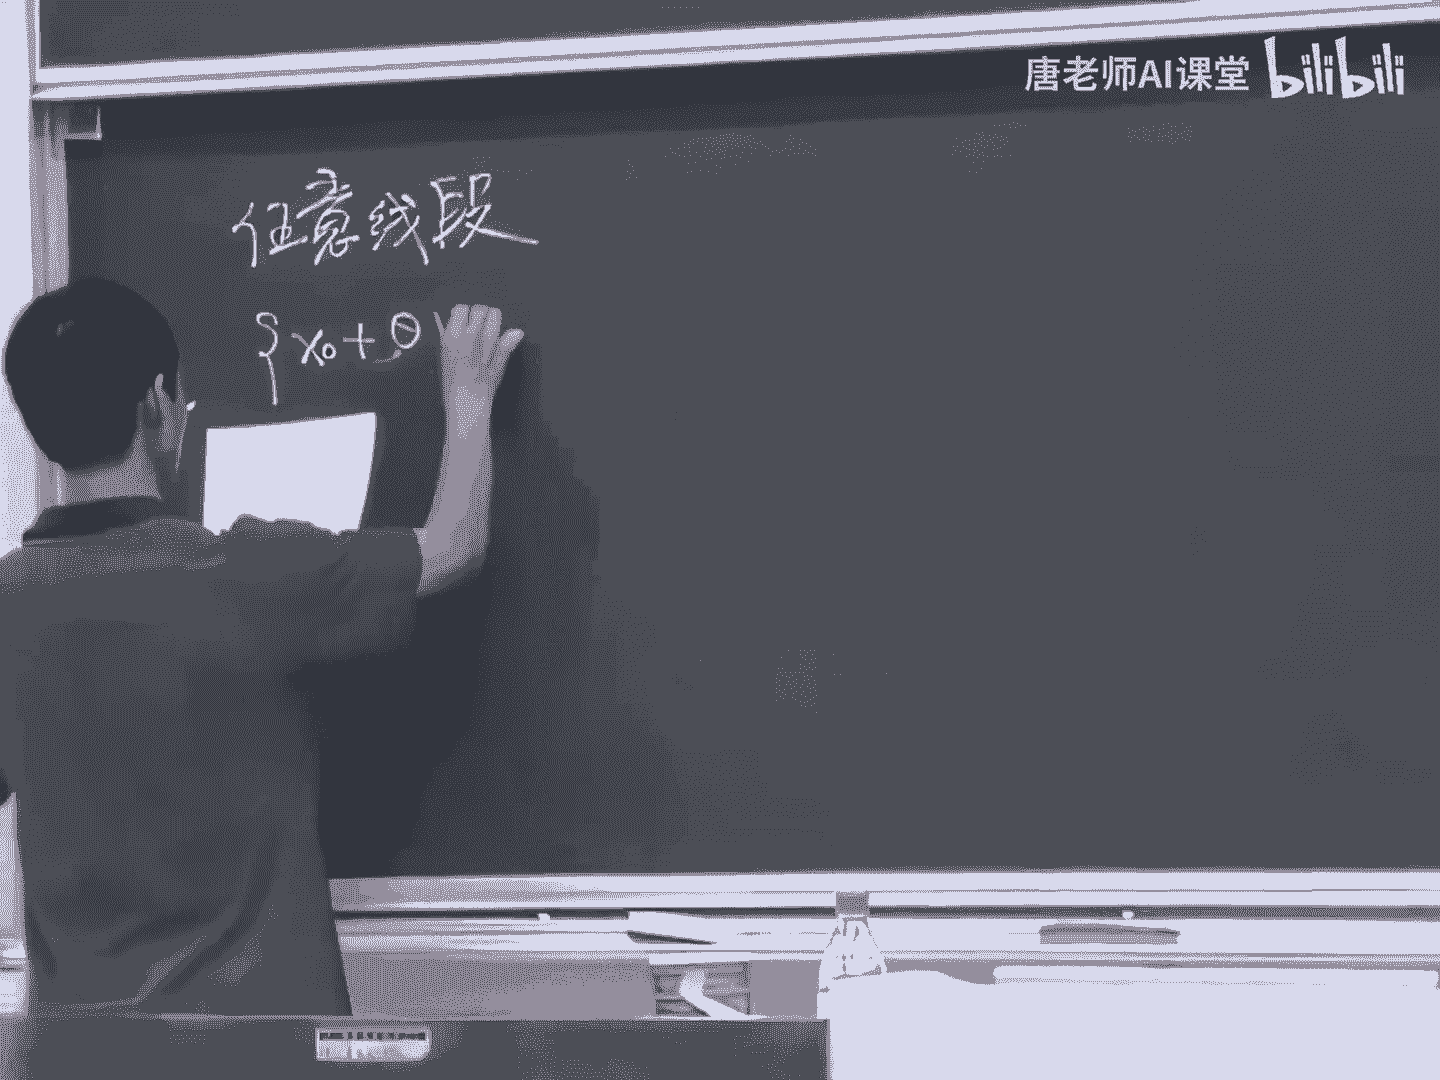 唐老师AI课堂 bilibili
任意线段
{x₀+θ